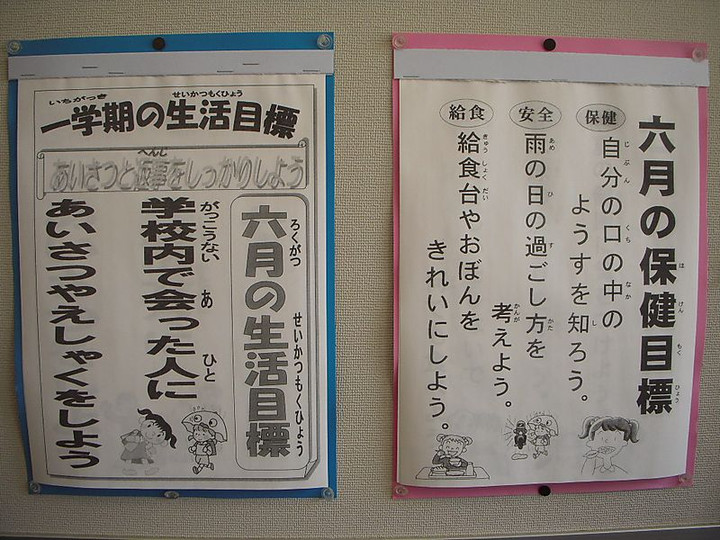 一学期の生活目標
いちがっき
せいかつもくひょう
あいさつと返事をしっかりしよう
へんじ
六月の生活目標
ろくがつ
せいかつもくひょう
学校内で会った人に
がっこうない
あ
ひと
あいさつやえしゃくをしよう
六月の保健目標
ほけんもくひょう
保健
自分の口の中の
じぶん
くち
なか
ようすを知ろう。
し
安全
雨の日の過ごし方を
あめ
ひ
す
かた
考えよう。
かんが
給食
給食台やおぼんを
きゅうしょくだい
きれいにしよう。